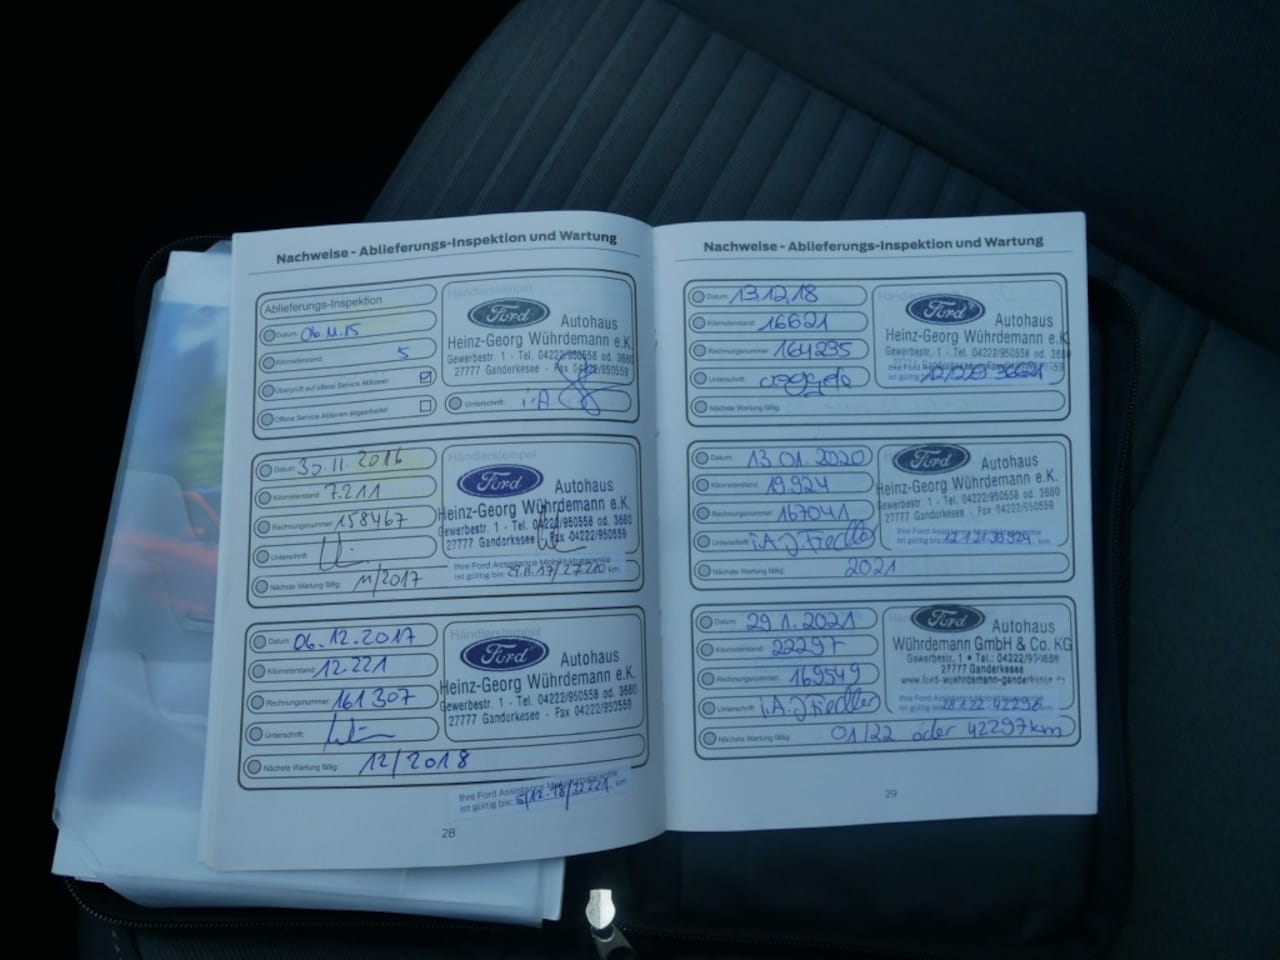 Nachweise - Ablieferungs-Inspektion und Wartung
Ablieferungs-Inspektion
Datum: 06.11.15
Kilometerstand: 5
Überprüft auf offene Service Aktionen:
Offene Service Aktionen abgearbeitet:
Händlerstempel
Ford
Autohaus
Heinz-Georg Wührdemann e.K.
Gewerbestr. 1 - Tel. 04222/950558 od. 3660
27777 Ganderkesee - Fax 04222/950559
Unterschrift: i.A
Datum: 30.11.2016
Kilometerstand: 7.211
Rechnungsnummer: 158467
Unterschrift:
Nächste Wartung fällig: 11/2017
Händlerstempel
Ford
Autohaus
Heinz-Georg Wührdemann e.K.
Gewerbestr. 1 - Tel. 04222/950558 od. 3660
27777 Ganderkesee - Fax 04222/950559
Ihre Ford Assistance Mobilitätsgarantie
ist gültig bis: 29.11.17/27210 km
Datum: 06.12.2017
Kilometerstand: 12.221
Rechnungsnummer: 161307
Unterschrift:
Nächste Wartung fällig: 12/2018
Händlerstempel
Ford
Autohaus
Heinz-Georg Wührdemann e.K.
Gewerbestr. 1 - Tel. 04222/950558 od. 3660
27777 Ganderkesee - Fax 04222/950559
Ihre Ford Assistance Mobilitätsgarantie
ist gültig bis: 5/12.18/32221 km
28
Nachweise - Ablieferungs-Inspektion und Wartung
Datum: 13.12.18
Kilometerstand: 16621
Rechnungsnummer: 164235
Unterschrift:
Nächste Wartung fällig:
Ford
Autohaus
Heinz-Georg Wührdemann e.K.
Gewerbestr. 1 - Tel. 04222/950558 od. 3660
27777 Ganderkesee
ist gültig bis: 36621
Datum: 13.01.2020
Kilometerstand: 19.924
Rechnungsnummer: 167041
Unterschrift: i.A. J. Fiedler
Nächste Wartung fällig: 2021
Ford
Autohaus
Heinz-Georg Wührdemann e.K.
Gewerbestr. 1 - Tel. 04222/950558 od. 3660
27777 Ganderkesee - Fax 04222/950559
Ihre Ford Assistance Mobilitätsgarantie
ist gültig bis: 12.1.21 39924 km
Datum: 29.1.2021
Kilometerstand: 22297
Rechnungsnummer: 169549
Unterschrift: i.A. J Fiedler
Nächste Wartung fällig: 01/22 oder 42297km
Ford
Autohaus
Wührdemann GmbH & Co. KG
Gewerbestr. 1 • Tel.: 04222/950558
27777 Ganderkesee
www.ford-wuehrdemann-ganderkesee.de
Ihre Ford Assistance Mobilitätsgarantie
ist gültig bis: 28.1.22 42296 km
29